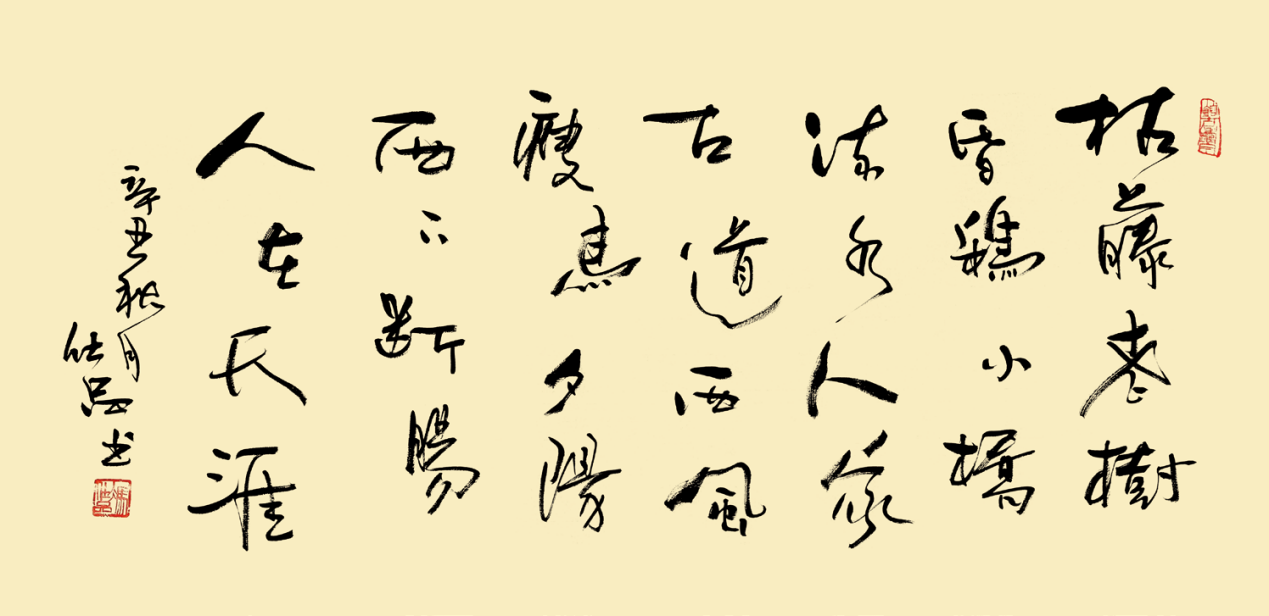 枯藤老樹
昏鴉小橋
流水人家
古道西風
瘦馬夕陽
西下斷腸
人在天涯
辛丑秋月
仕书